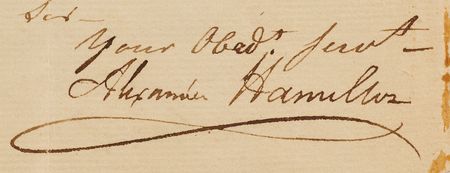 Sir
Your Obed.t Serv.t
Alexander Hamilton